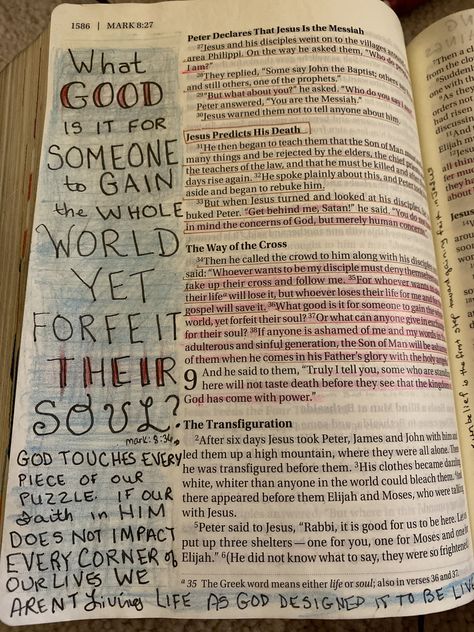 1586 | MARK 8:27
What
GOOD
IS IT FOR
SOMEONE
to GAIN
the WHOLE
WORLD
YET
FORFEIT
THEIR
SOUL?
mark: 8:36
GOD TOUCHES EVERY
PIECE OF OUR
PUZZLE. IF OUR
faith in HIM
DOES NOT IMPACT
EVERY CORNER of
OUR LIVES WE
ARENT living LIFE AS GOD DESIGNED IT TO BE
Peter Declares That Jesus Is the Messiah
27Jesus and his disciples went on to the villages
area Philippi. On the way he asked them, "Who do
I am?"
28They replied, "Some say John the Baptist; others
and still others, one of the prophets."
29"But what about you?" he asked. "Who do you say I am
Peter answered, "You are the Messiah."
30Jesus warned them not to tell anyone about him.
Jesus Predicts His Death
31He then began to teach them that the Son of Man
many things and be rejected by the elders, the chief
the teachers of the law, and that he must be killed and after
days rise again. 32He spoke plainly about this, and Peter
aside and began to rebuke him.
33But when Jesus turned and looked at his disciples, he
buked Peter. "Get behind me, Satan!" he said. "You do
in mind the concerns of God, but merely human concerns."
The Way of the Cross
34Then he called the crowd to him along with his disciples
said: "Whoever wants to be my disciple must deny themselves
take up their cross and follow me. 35For whoever wants
their life a will lose it, but whoever loses their life for me and
gospel will save it. 36What good is it for someone to gain the
world, yet forfeit their soul? 37Or what can anyone give in
for their soul? 38If anyone is ashamed of me and my words in
adulterous and sinful generation, the Son of Man will be
of them when he comes in his Father's glory with the holy
9 And he said to them, "Truly I tell you, some who are
here will not taste death before they see that the kingdom
God has come with power."
The Transfiguration
2After six days Jesus took Peter, James and John with him and
led them up a high mountain, where they were all alone. There
he was transfigured before them. 3His clothes became dazzling
white, whiter than anyone in the world could bleach them.
there appeared before them Elijah and Moses, who were talking
with Jesus.
5Peter said to Jesus, "Rabbi, it is good for us to be here.
put up three shelters—one for you, one for Moses and one
Elijah." 6(He did not know what to say, they were so frightened
a 35 The Greek word means either life or soul; also in verses 36 and 37.